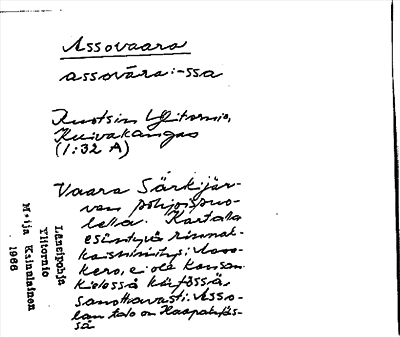 Assovaara
assovāra: -ssa
Ruotsin Ylitornio,
Kuivakangas
(1:32 A)
Vaara Särkijär-
ven pohjoispuo-
lella. Kartalla
esiintyvä rinnak-
kaisnimitys, Vuoso-
kero, ei ole kansan
kielessä käytössä
sanottavasti. Asso-
lan talo on Haapakyläs-
sä
Länsipohja
Ylitornio
Maija Kainulainen
1966